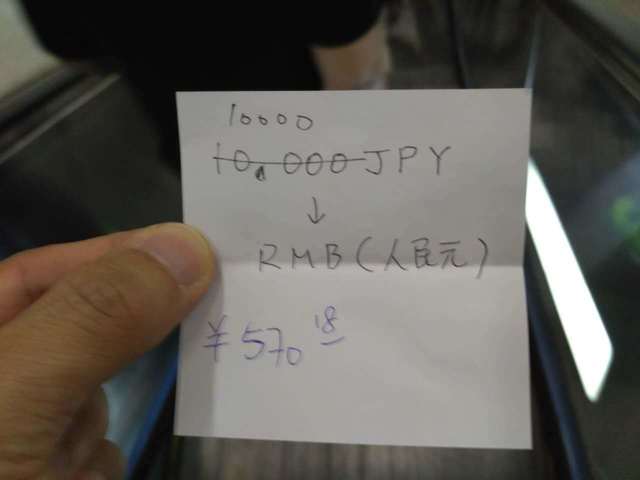 10000
10,000 JPY
↓
RMB(人民元)
¥570 18